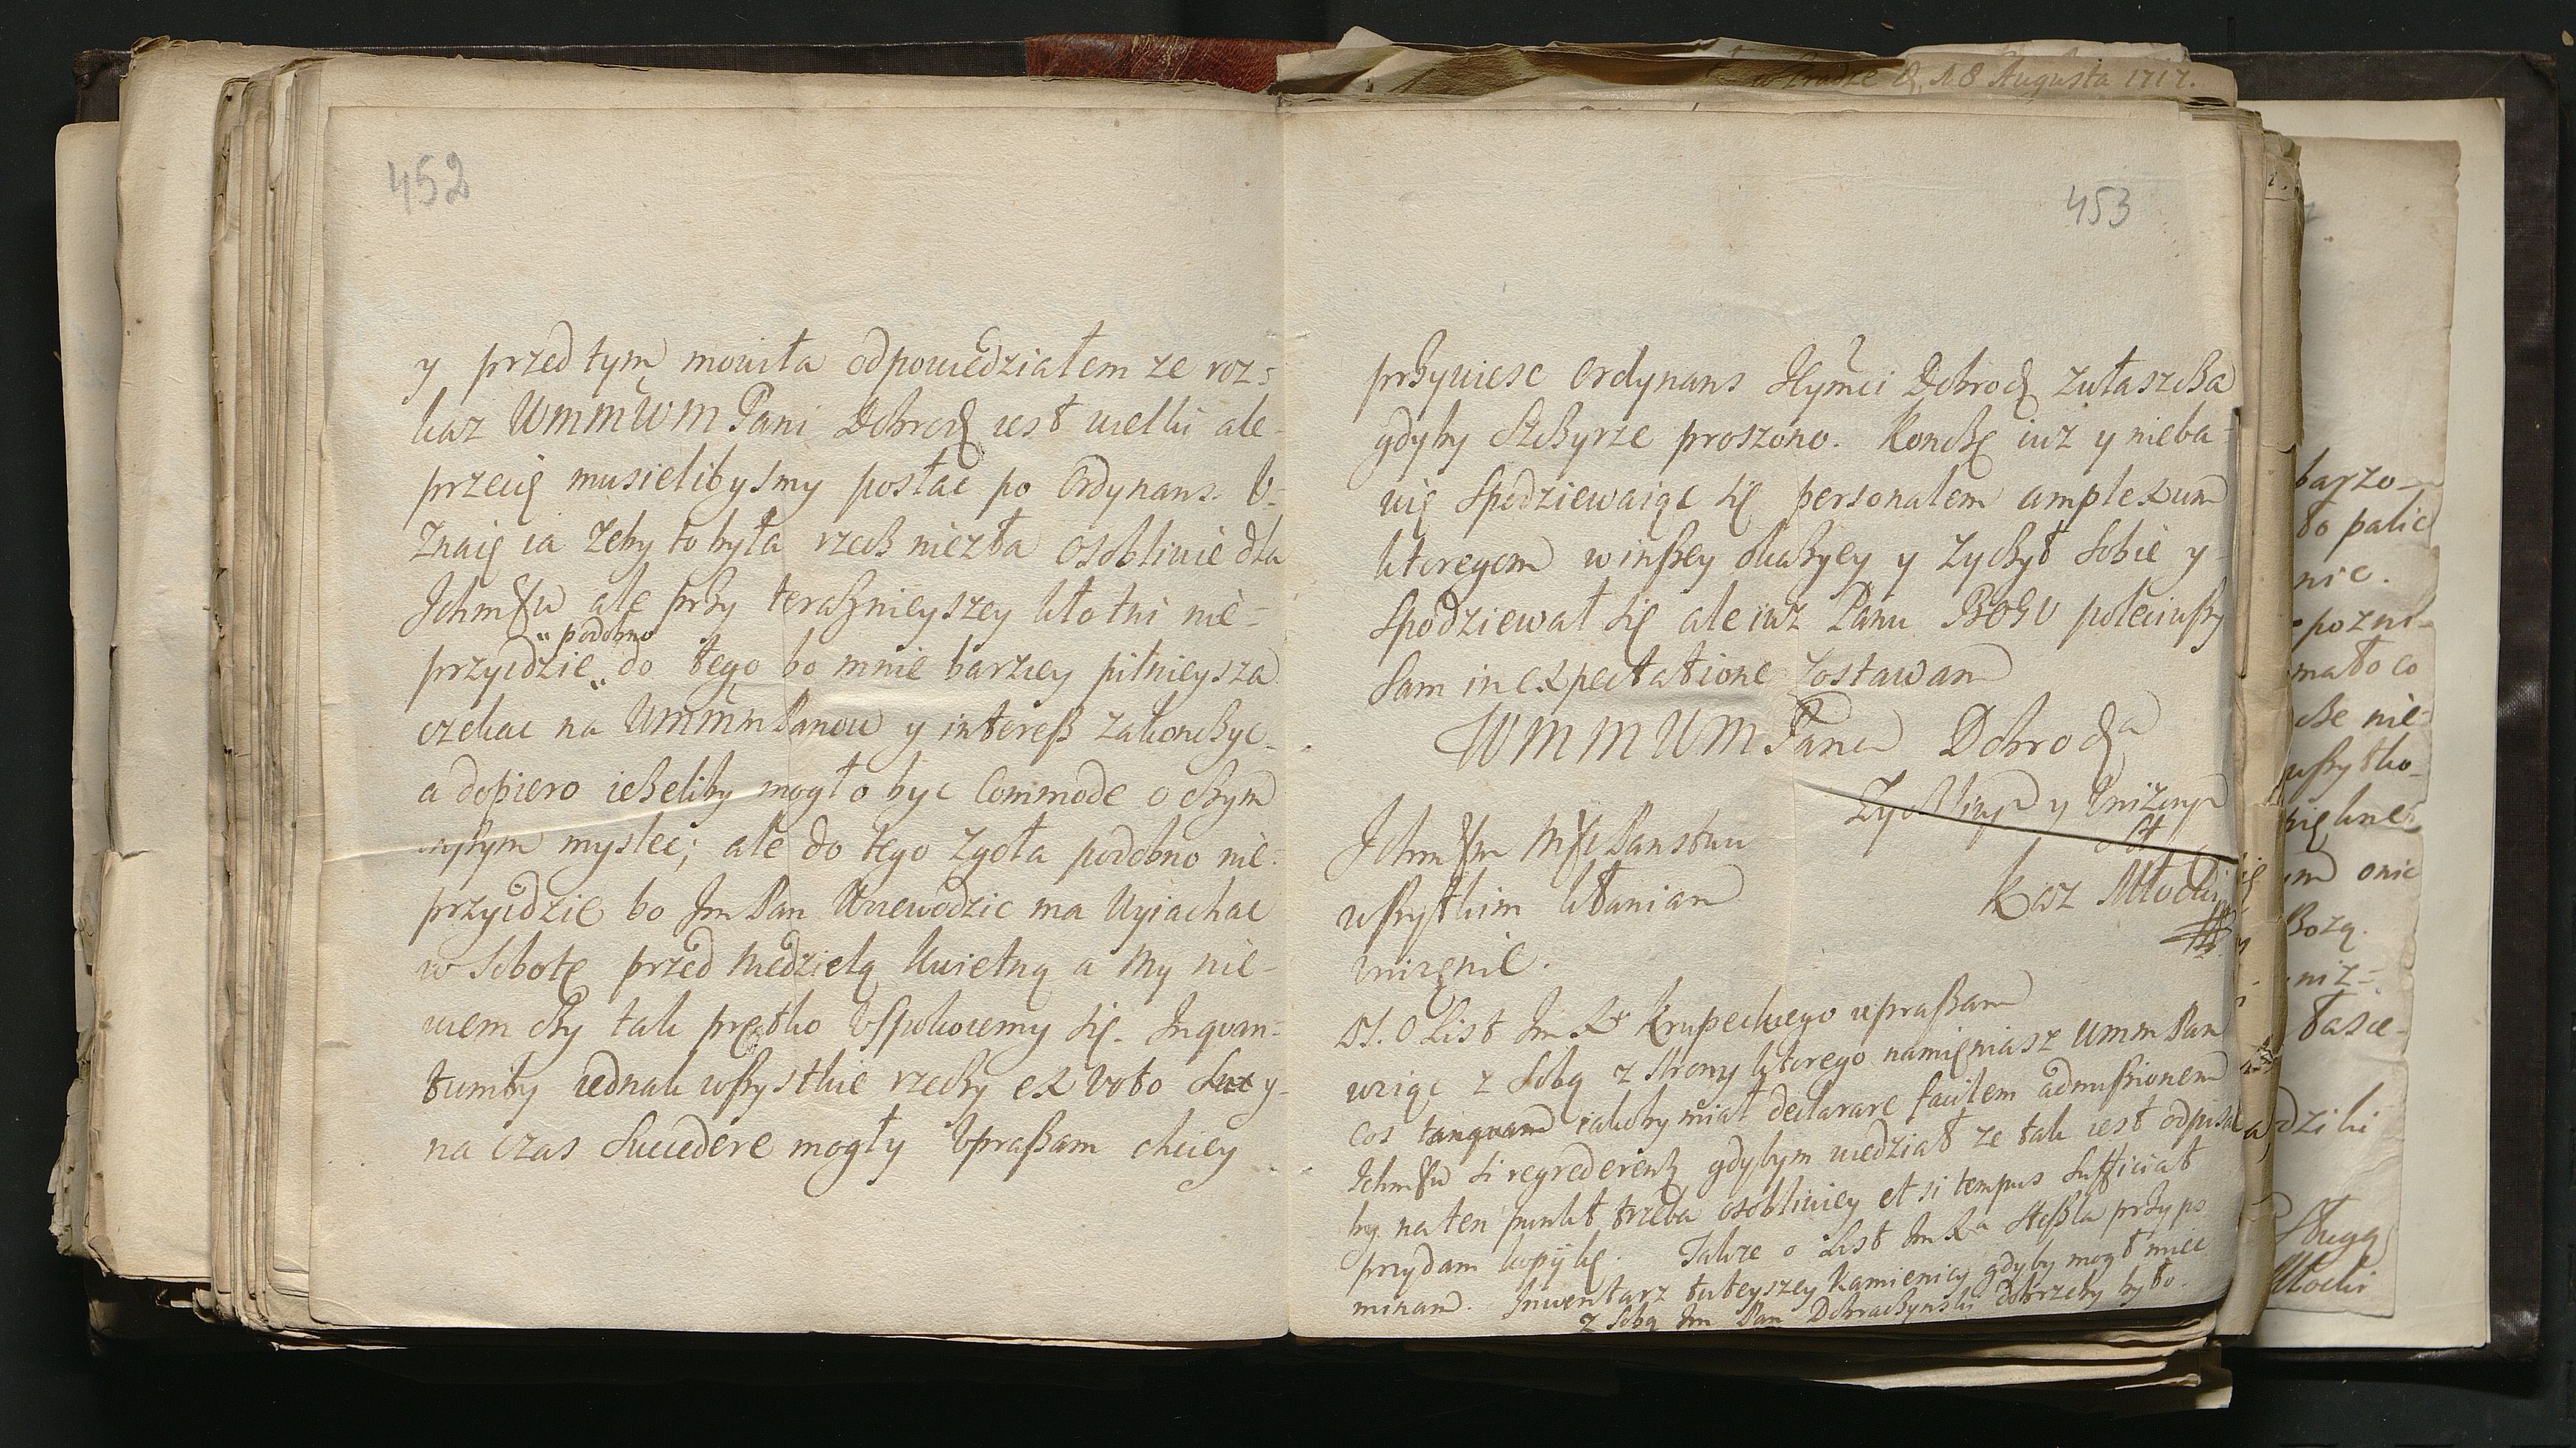 452
y przed tym mowiła odpowiedziałem ze roz=
kaz WMMWM Pani Dobrodz iest wielki ale
przecię musielibysmy posłac po Ordynans. V=
znaię ia zeby to była rzecz niezła osobliwie dla
Ichmsciw ale przy teraznieyszey kłotni nie=
podobno
przyidzie do tego bo mnie barziey pilnieysza
czekac na WMMm Panow y interesz zakonczyc
a dopiero iezeliby mogło byc Commode o czym
inszym myslec; ale do tego zgoła podobno nie
przyidzie bo Jm Pan Woiewodzic ma Wyiachac
w Sobotę przed Niedzielą Kwietną a My nie=
wiem czy tak prętko Vspokoiemy się. Inquan=
tumby iednak wszystkie rzeczy ex voto y
na czas Succedere mogły Vpraszam chciey
453
przywiesc Ordynans Jeymci Dobrodz zwłaszcza
gdyby Szczyrze proszono. Konczę iuz y nieba=
wię Spodziewaiąc się personalem amplexum
ktoregom w inszey okazyey y zyczył Sobie y
Spodziewał się ale iuz Panu BOGU poleciwszy
Sam in expectatione zostawam
WMMWM Pana Dobrodza
Zyczliwym y Vnizonym
Sł
Kasz Młocki
Ichmsciom Msci Panstwu
wszystkim kłaniam
Vnizenie.
PS. O List Jm Xa Krupeckiego upraszam
wziąc z Sobą z strony ktorego namięniasz WMM Pan
cos tanquam iakoby miał declarare facilem admissionem
Ichmsciw si regrederentur gdybym wiedział ze tak iest odpisał
by na ten punkt trzeba osobliwiey et si tempus sufficiat
przydam kopijkę. Takze o List Jm Xa Steszla przypo
minam. Inwentarz tuteyszey Kamienicy gdyby mogł miec
z Sobą Jm Pan Dobraczynski dobrzeby było.
w Pradze D. 18 Augusta 1717.
barzo
to palic
nic.
pozni
mało co
nie
wszytko
onie
Bozą.
niz=
łasce
dziki
Sługą
Młocki